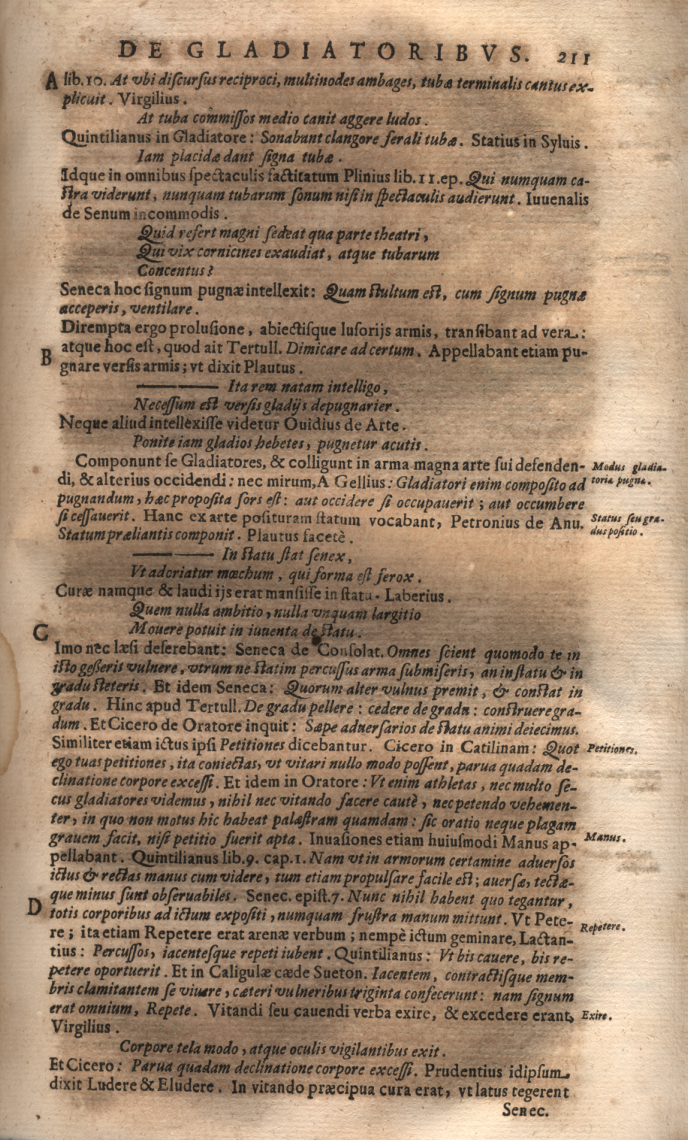 DE GLADIATORIBVS. 211
A lib. 10. At vbi discursus reciproci, multinodes ambages, tubæ terminalis cantus ex-
plicuit. Virgilius.
At tuba commissos medio canit aggere ludos.
Quintilianus in Gladiatore: Sonabant clangore ferali tubæ. Statius in Syluis.
Iam placidæ dant signa tubæ.
Idque in omnibus spectaculis factitatum Plinius lib. 11. ep. Qui numquam ca-
stra viderunt, nunquam tubarum sonum nisi in spectaculis audierunt. Iuuenalis
de Senum incommodis.
Quid refert magni sedeat qua parte theatri,
Qui vix cornicines exaudiat, atque tubarum
Concentus?
Seneca hoc signum pugnæ intellexit: Quam stultum est, cum signum pugnæ
acceperis, ventilare.
Dirempta ergo prolusione, abiectisque lusorijs armis, transibant ad vera:
B atque hoc est, quod ait Tertull. Dimicare ad certum. Appellabant etiam pu-
gnare versis armis; vt dixit Plautus.
——— Ita rem natam intelligo,
Necessum est versis gladijs depugnarier.
Neque aliud intellexisse videtur Ouidius de Arte.
Ponite iam gladios hebetes, pugnetur acutis.
Componunt se Gladiatores, & colligunt in arma magna arte sui defenden- Modus gladia-
di, & alterius occidendi: nec mirum, A Gellius: Gladiatori enim composito ad toria pugna.
pugnandum, hæc proposita sors est: aut occidere si occupauerit; aut occumbere
si cessauerit. Hanc ex arte posituram statum vocabant, Petronius de Anu. Status seu gra-
Statum præliantis componit. Plautus facetè. dus positio.
——— In statu stat senex,
Vt adoriatur mœchum, qui forma est ferox.
Curæ namque & laudi ijs erat mansisse in statu. Laberius.
Quem nulla ambitio, nulla vnquam largitio
C Mouere potuit in iuuenta de statu.
Imo nec læsi deserebant: Seneca de Consolat. Omnes scient quomodo te in
isto gesseris vulnere, vtrum ne statim percussus arma submiseris, an in statu & in
gradu steteris. Et idem Seneca: Quorum alter vulnus premit, & constat in
gradu. Hinc apud Tertull. De gradu pellere: cedere de gradu: construere gra-
dum. Et Cicero de Oratore inquit: Sæpe aduersarios de statu animi deiecimus.
Similiter etiam ictus ipsi Petitiones dicebantur. Cicero in Catilinam: Quot Petitiones.
ego tuas petitiones, ita coniectas, vt vitari nullo modo possent, parua quadam de-
clinatione corpore excessi. Et idem in Oratore: Vt enim athletas, nec multo se-
cus gladiatores videmus, nihil nec vitando facere cautè, nec petendo vehemen-
ter, in quo non motus hic habeat palæstram quamdam: sic oratio neque plagam
grauem facit, nisi petitio fuerit apta. Inuasiones etiam huiusmodi Manus ap- Manus.
pellabant. Quintilianus lib. 9. cap. 1. Nam vt in armorum certamine aduersos
ictus & rectas manus cum videre, tum etiam propulsare facile est; auersæ, tectæ-
que minus sunt obseruabiles. Senec. epist. 7. Nunc nihil habent quo tegantur,
D totis corporibus ad ictum expositi, numquam frustra manum mittunt. Vt Pete-
re; ita etiam Repetere erat arenæ verbum; nempè ictum geminare, Lactan- Repetere.
tius: Percussos, iacentesque repeti iubent. Quintilianus: Vt bis cauere, bis re-
petere oportuerit. Et in Caligulæ cæde Sueton. Iacentem, contractisque mem-
bris clamitantem se viuere, cæteri vulneribus triginta confecerunt: nam signum
erat omnium, Repete. Vitandi seu cauendi verba exire, & excedere erant, Exire.
Virgilius.
Corpore tela modo, atque oculis vigilantibus exit.
Et Cicero: Parua quadam declinatione corpore excessi. Prudentius idipsum
dixit Ludere & Eludere. In vitando præcipua cura erat, vt latus tegerent
Senec.